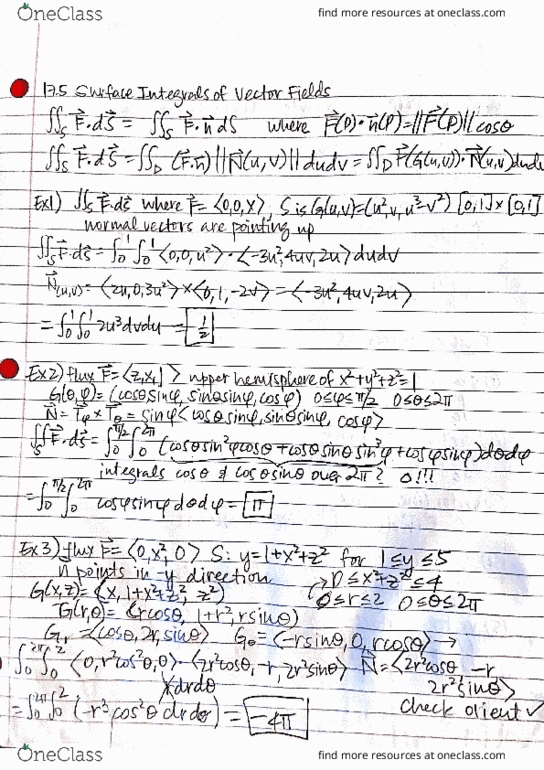 OneClass
find more resources at oneclass.com
17.5 Surface Integrals of Vector Fields
∬_S F⃗·dS⃗ = ∬_S F⃗·n⃗ dS where F⃗(P)·n⃗(P)=||F⃗(P)||cosθ
∬_S F⃗·dS⃗ = ∬_D (F⃗·n⃗)||N⃗(u,v)||dudv = ∬_D F⃗(G(u,v))·N⃗(u,v)dudv
Ex1) ∬_S F⃗·dS⃗ where F⃗=⟨0,0,x⟩, S is G(u,v)=(u²,v,u³-v²) [0,1]×[0,1]
normal vectors are pointing up
∬_S F⃗·dS⃗ = ∫₀¹∫₀¹⟨0,0,u²⟩·⟨-3u²,4uv,2u⟩dudv
N⃗(u,v)=⟨2u,0,3u²⟩×⟨0,1,-2v⟩=⟨-3u²,4uv,2u⟩
=∫₀¹∫₀¹2u³dvdu = 1/2
Ex2) flux F⃗=⟨z,x,1⟩ upper hemisphere of x²+y²+z²=1
G(θ,φ)=(cosθsinφ,sinθsinφ,cosφ) 0≤φ≤π/2 0≤θ≤2π
N⃗=T⃗φ×T⃗θ=sinφ⟨cosθsinφ,sinθsinφ,cosφ⟩
∬_S F⃗·dS⃗=∫₀^π/2∫₀^2π(cosθsin²φcosφ+cosθsinθsin³φ+cosφsinφ)dθdφ
integrals cosθ & cosθsinθ over 2π? 0!!!
=∫₀^π/2∫₀^2π cosφsinφdθdφ = π
Ex3) flux F⃗=⟨0,x²,0⟩ S: y=1+x²+z² for 1≤y≤5
n⃗ points in -y direction → 0≤x²+z²≤4
G(x,z)=(x,1+x²+z²,z) 0≤r≤2 0≤θ≤2π
G(r,θ)=(rcosθ,1+r²,rsinθ)
G_r=⟨cosθ,2r,sinθ⟩ G_θ=⟨-rsinθ,0,rcosθ⟩→
∫₀^2π∫₀²⟨0,r²cos²θ,0⟩·⟨2r²cosθ,-r,2r²sinθ⟩ N⃗=⟨2r²cosθ -r
drdθ 2r²sinθ⟩
=∫₀^2π∫₀²(-r³cos²θdrdθ) = -4π check orient ✓
OneClass
find more resources at oneclass.com